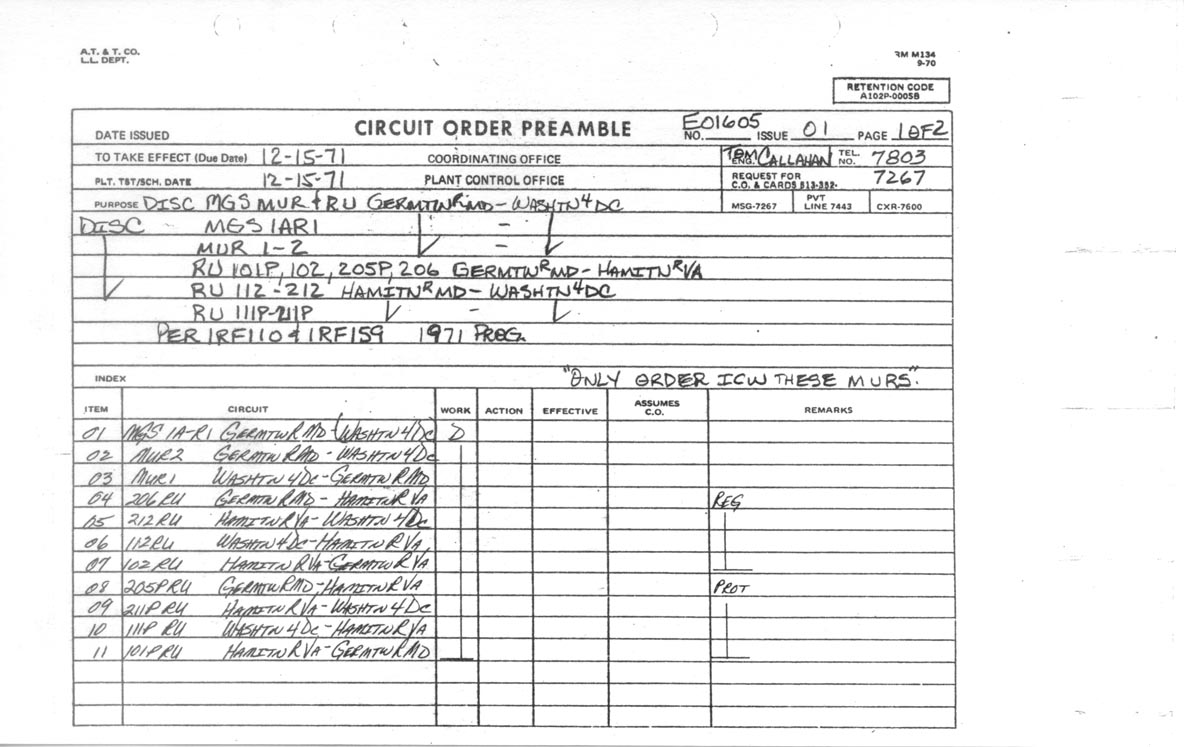 A.T. & T. CO.
L.L. DEPT.
RM M134
9-70
RETENTION CODE
A102P-0005B
DATE ISSUED
CIRCUIT ORDER PREAMBLE
NO. E01605 ISSUE 01 PAGE 1 OF 2
TO TAKE EFFECT (Due Date) 12-15-71
COORDINATING OFFICE
ENG. TOM CALLAHAN TEL. NO. 7803
PLT. TST/SCH. DATE 12-15-71
PLANT CONTROL OFFICE
REQUEST FOR C.O. & CARDS 513-352- 7267
PURPOSE DISC MGS MUR & RU GERMTWN R MD - WASHTN 4 DC
MSG-7267 PVT LINE 7443 CXR-7600
DISC MGS 1AR1 -
MUR 1-2 -
RU 101P, 102, 205P, 206 GERMTW R MD - HAMITN R VA
RU 112 - 212 HAMITN R MD - WASHTN 4 DC
RU 111P-211P -
PER 1RF110 & 1RF159 1971 PROG.
INDEX
"ONLY ORDER ICW THESE MURS".
ITEM CIRCUIT WORK ACTION EFFECTIVE ASSUMES C.O. REMARKS
01 MGS 1A-R1 GERMTW R MD - WASHTN 4 DC D
02 MUR2 GERMTW R MD - WASHTN 4 DC
03 MUR1 WASHTN 4 DC - GERMTW R MD
04 206 RU GERMTW R MD - HAMITN R VA REG
05 212 RU HAMITN R VA - WASHTN 4 DC
06 112 RU WASHTN 4 DC - HAMITN R VA
07 102 RU HAMITN R VA - GERMTW R VA
08 205P RU GERMTW R MD - HAMITN R VA PROT
09 211P RU HAMITN R VA - WASHTN 4 DC
10 111P RU WASHTN 4 DC - HAMITN R VA
11 101P RU HAMITN R VA - GERMTW R MD